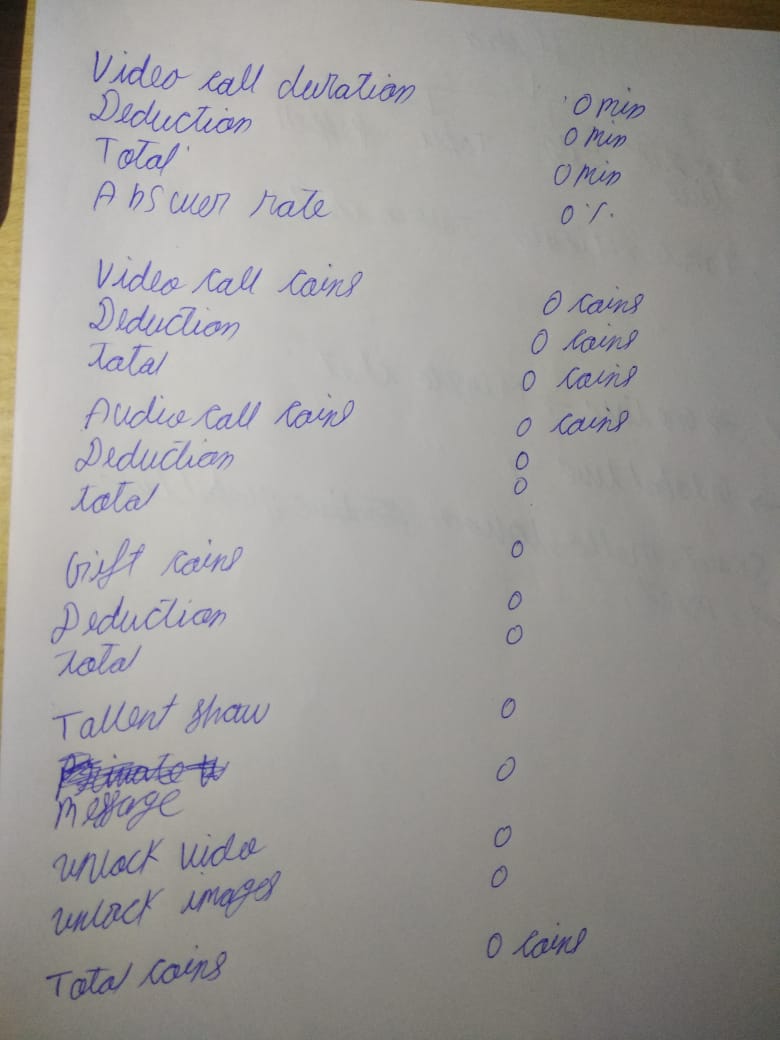 Video call duration 0 min
Deduction 0 min
Total 0 min
Answer rate 0 %.
Video call coins 0 coins
Deduction 0 coins
total 0 coins
Audio call coins 0 coins
Deduction 0
total 0
Gift coins 0
Deduction 0
total 0
Tallent show 0
Message 0
unlock video 0
unlock images 0
Total coins 0 coins